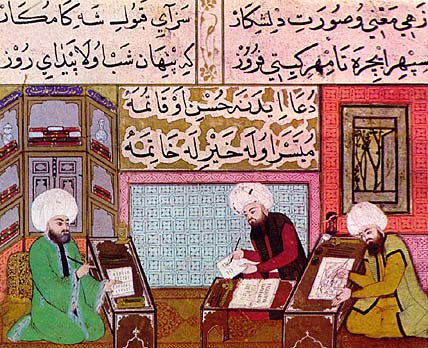 زهی معنی وصورت دلشکار سزای قبول شه کامکار
سپهر ایچره تا مهر کیتی فروز که پنهان شب اولا پیدای روز
دعا ایدنه حسن اوقاتمه
میسر اوله خیر له خاتمه